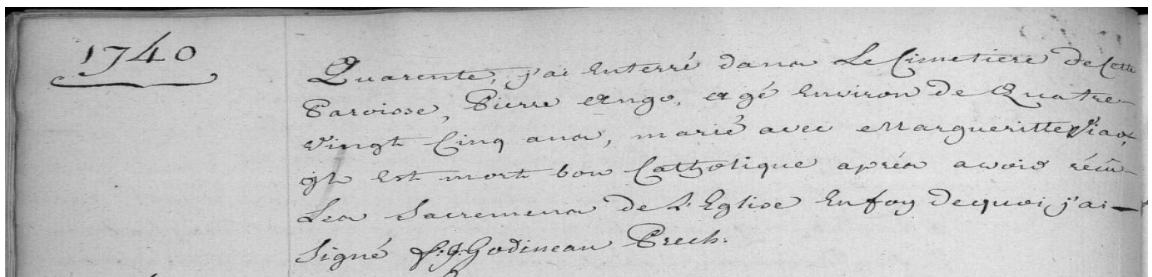 1740
Quarente, j'ai Enterré dans Le Cimetiere de Cette
Paroisse, Pierre ango, agé Environ de Quatre-
vingt Cinq ans, marié avec Margueritte
il Est mort bon Catholique aprés avoir récû-
Les Sacremens de L'Eglise En foy dequoi j'ai
Signé f: J: Godineau Prech.